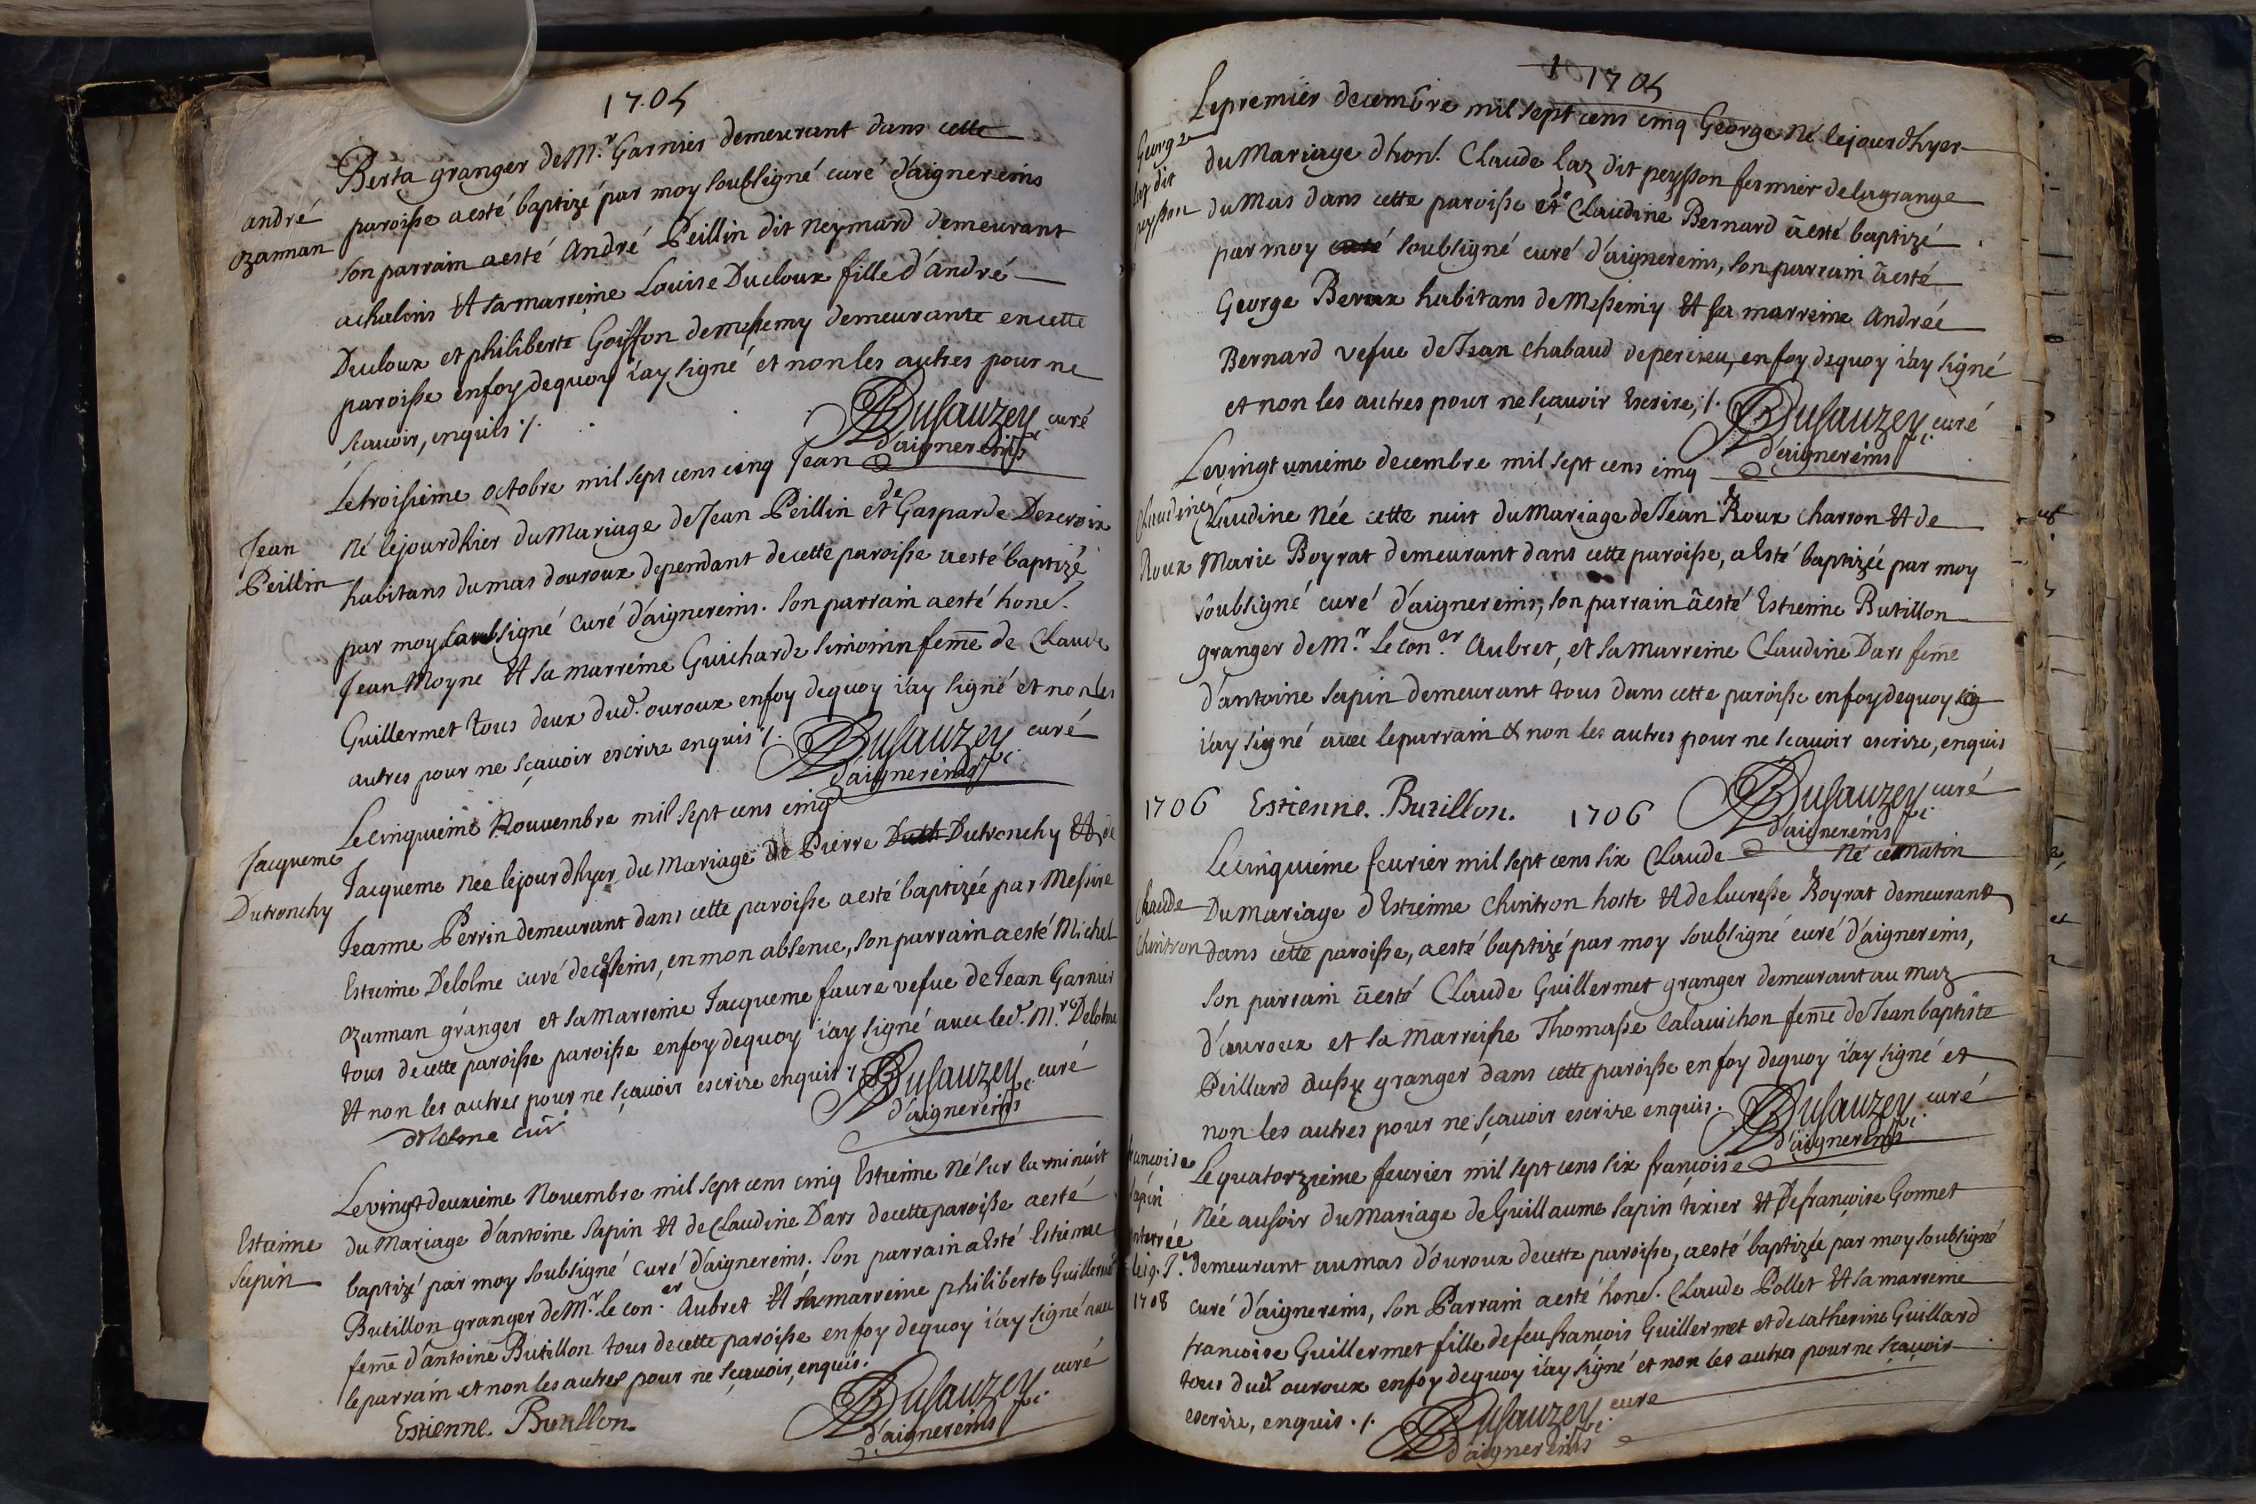 1705
Berta granger de Mr. Garnier demeurant dans cette
paroisse a esté baptizé par moy soubsigné curé d'aignereins
andré
ozannan
son parrain a esté André Peillin dit neymard demeurant
achaleins et sa marreine Louise Ducloux fille d'andré
Ducloux et philiberte Goiffon demessemy demeurante en cette
paroisse en foy dequoy i'ay signé et non les autres pour ne
scavoir, enquis ./.
Dusauzey curé
d'aignereins
Le troisieme octobre mil sept cens cinq Jean
Jean
Peillin
né le jourdhier du Mariage de Jean Peillin et de Gasparde Descroix
habitans du mas d'ouroux dependant de cette paroisse a esté baptizé
par moy soubsigné curé d'aignereins. son parrain a esté hone.
Jean Moyne et sa marreine Guicharde simonin feme de Claude
Guillermet tous deux dud. ouroux en foy dequoy i'ay signé et non les
autres pour ne sçavoir escrire enquis ./.
Dusauzey curé
d'aignereins
Le cinquieme Nouvembre mil sept cens cinq
Jacqueme
Dutronchy
Jacqueme née le jourdhyer du mariage de Pierre Dutronchy et de
Jeanne Perrin demeurant dans cette paroisse a esté baptizée par Messire
Estienne Delolme curé de cesseins, en mon absence, son parrain a esté Michel
ozannan granger et sa marreine Jacqueme faure vefue de Jean Garnier
tous de cette paroisse paroisse en foy dequoy i'ay signé avec led. Mr. Delolme
et non les autres pour ne sçavoir escrire enquis ./.
Dusauzey curé
d'aignereins
delolme curé
Le vingt deuxieme Novembre mil sept cens cinq Estienne né sur la minuit
Estienne
Sapin
du Mariage d'antoine Sapin et de Claudine Dars de cette paroisse a esté
baptizé par moy soubsigné curé d'aignereins. son parrain a Esté Estienne
Butillon granger de Mr. le con.er Aubret et sa marreine philiberte Guillermet
feme d'antoine Butillon tous de cette paroisse en foy dequoy i'ay signé avec
le parrain et non les autres pour ne sçavoir, enquis.
Estienne. Butillon.
Dusauzey curé
d'aignereins
1705
Le premier decembre mil sept cens cinq George né le jourdhyer
George
Laz dit
peysson
du Mariage d'hon. Claude Laz dit peysson fermier de la grange
du Mas dans cette paroisse et de Claudine Bernard a esté baptizé
par moy soubsigné curé d'aignereins, son parrain a esté
George Beroux habitans de Messimy et sa marreine Andrée
Bernard vefue de Jean Chabaud de perizeu, en foy dequoy i'ay signé
et non les autres pour ne sçavoir Escrire, ./.
Dusauzey curé
d'aignereins
Le vingt unieme decembre mil sept cens cinq
Claudine
Roux
Claudine née cette nuit du Mariage de Jean Roux charron et de
Marie Boyrat demeurant dans cette paroisse, a Esté baptizée par moy
soubsigné curé d'aignereins, son parrain a esté Estienne Butillon
granger de Mr. Le con.er Aubret, et sa marreine Claudine Dars feme
d'antoine sapin demeurant tous dans cette paroisse en foy dequoy
i'ay signé avec le parrain & non les autres pour ne scavoir escrire, enquis
1706 Estienne. Butillon. 1706
Dusauzey curé
d'aignereins
Le cinquieme feurier mil sept cens six Claude né ce matin
Claude
Chintron
Du mariage d'Estienne Chintron hoste et de lucresse Royrat demeurant
dans cette paroisse, a esté baptizé par moy soubsigné curé d'aignereins,
son parrain a esté Claude Guillermet granger demeurant au maz
d'ouroux et sa Marreine Thomasse calavichon feme de Jean baptiste
Peillard aussy granger dans cette paroisse en foy dequoy i'ay signé et
non les autres pour ne sçavoir escrire enquis.
Dusauzey curé
d'aignereins
Le quatorzieme feurier mil sept cens six françoise
françoise
sapin
enterrée
1708
Née au soir du Mariage de Guillaume sapin tixier et De françoise Gonnet
demeurant au mas d'ouroux de cette paroisse, a esté baptizée par moy soubsigné
curé d'aignereins, son Parrain a esté hone. Claude Pollet et sa marreine
francoise Guillermet fille de feu françois Guillermet et de catherine Guillard
tous dud. ouroux en foy dequoy i'ay signé et non les autres pour ne sçavoir
escrire, enquis ./.
Dusauzey curé
d'aignereins